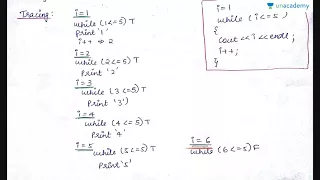 Tracing:
i=1
while (1<=5) T
Print '1'
i++ ⇒ 2
i=2
while (2<=5) T
Print '2'
i=3
while (3<=5) T
Print '3')
i=4
while (4<=5) T
Print '4'
i=5
while (5<=5) T
Print '5'
unacademy
i=1
while (i<=5)
{
cout<<i<<endl;
i++;
}
i=6
while (6<=5) F